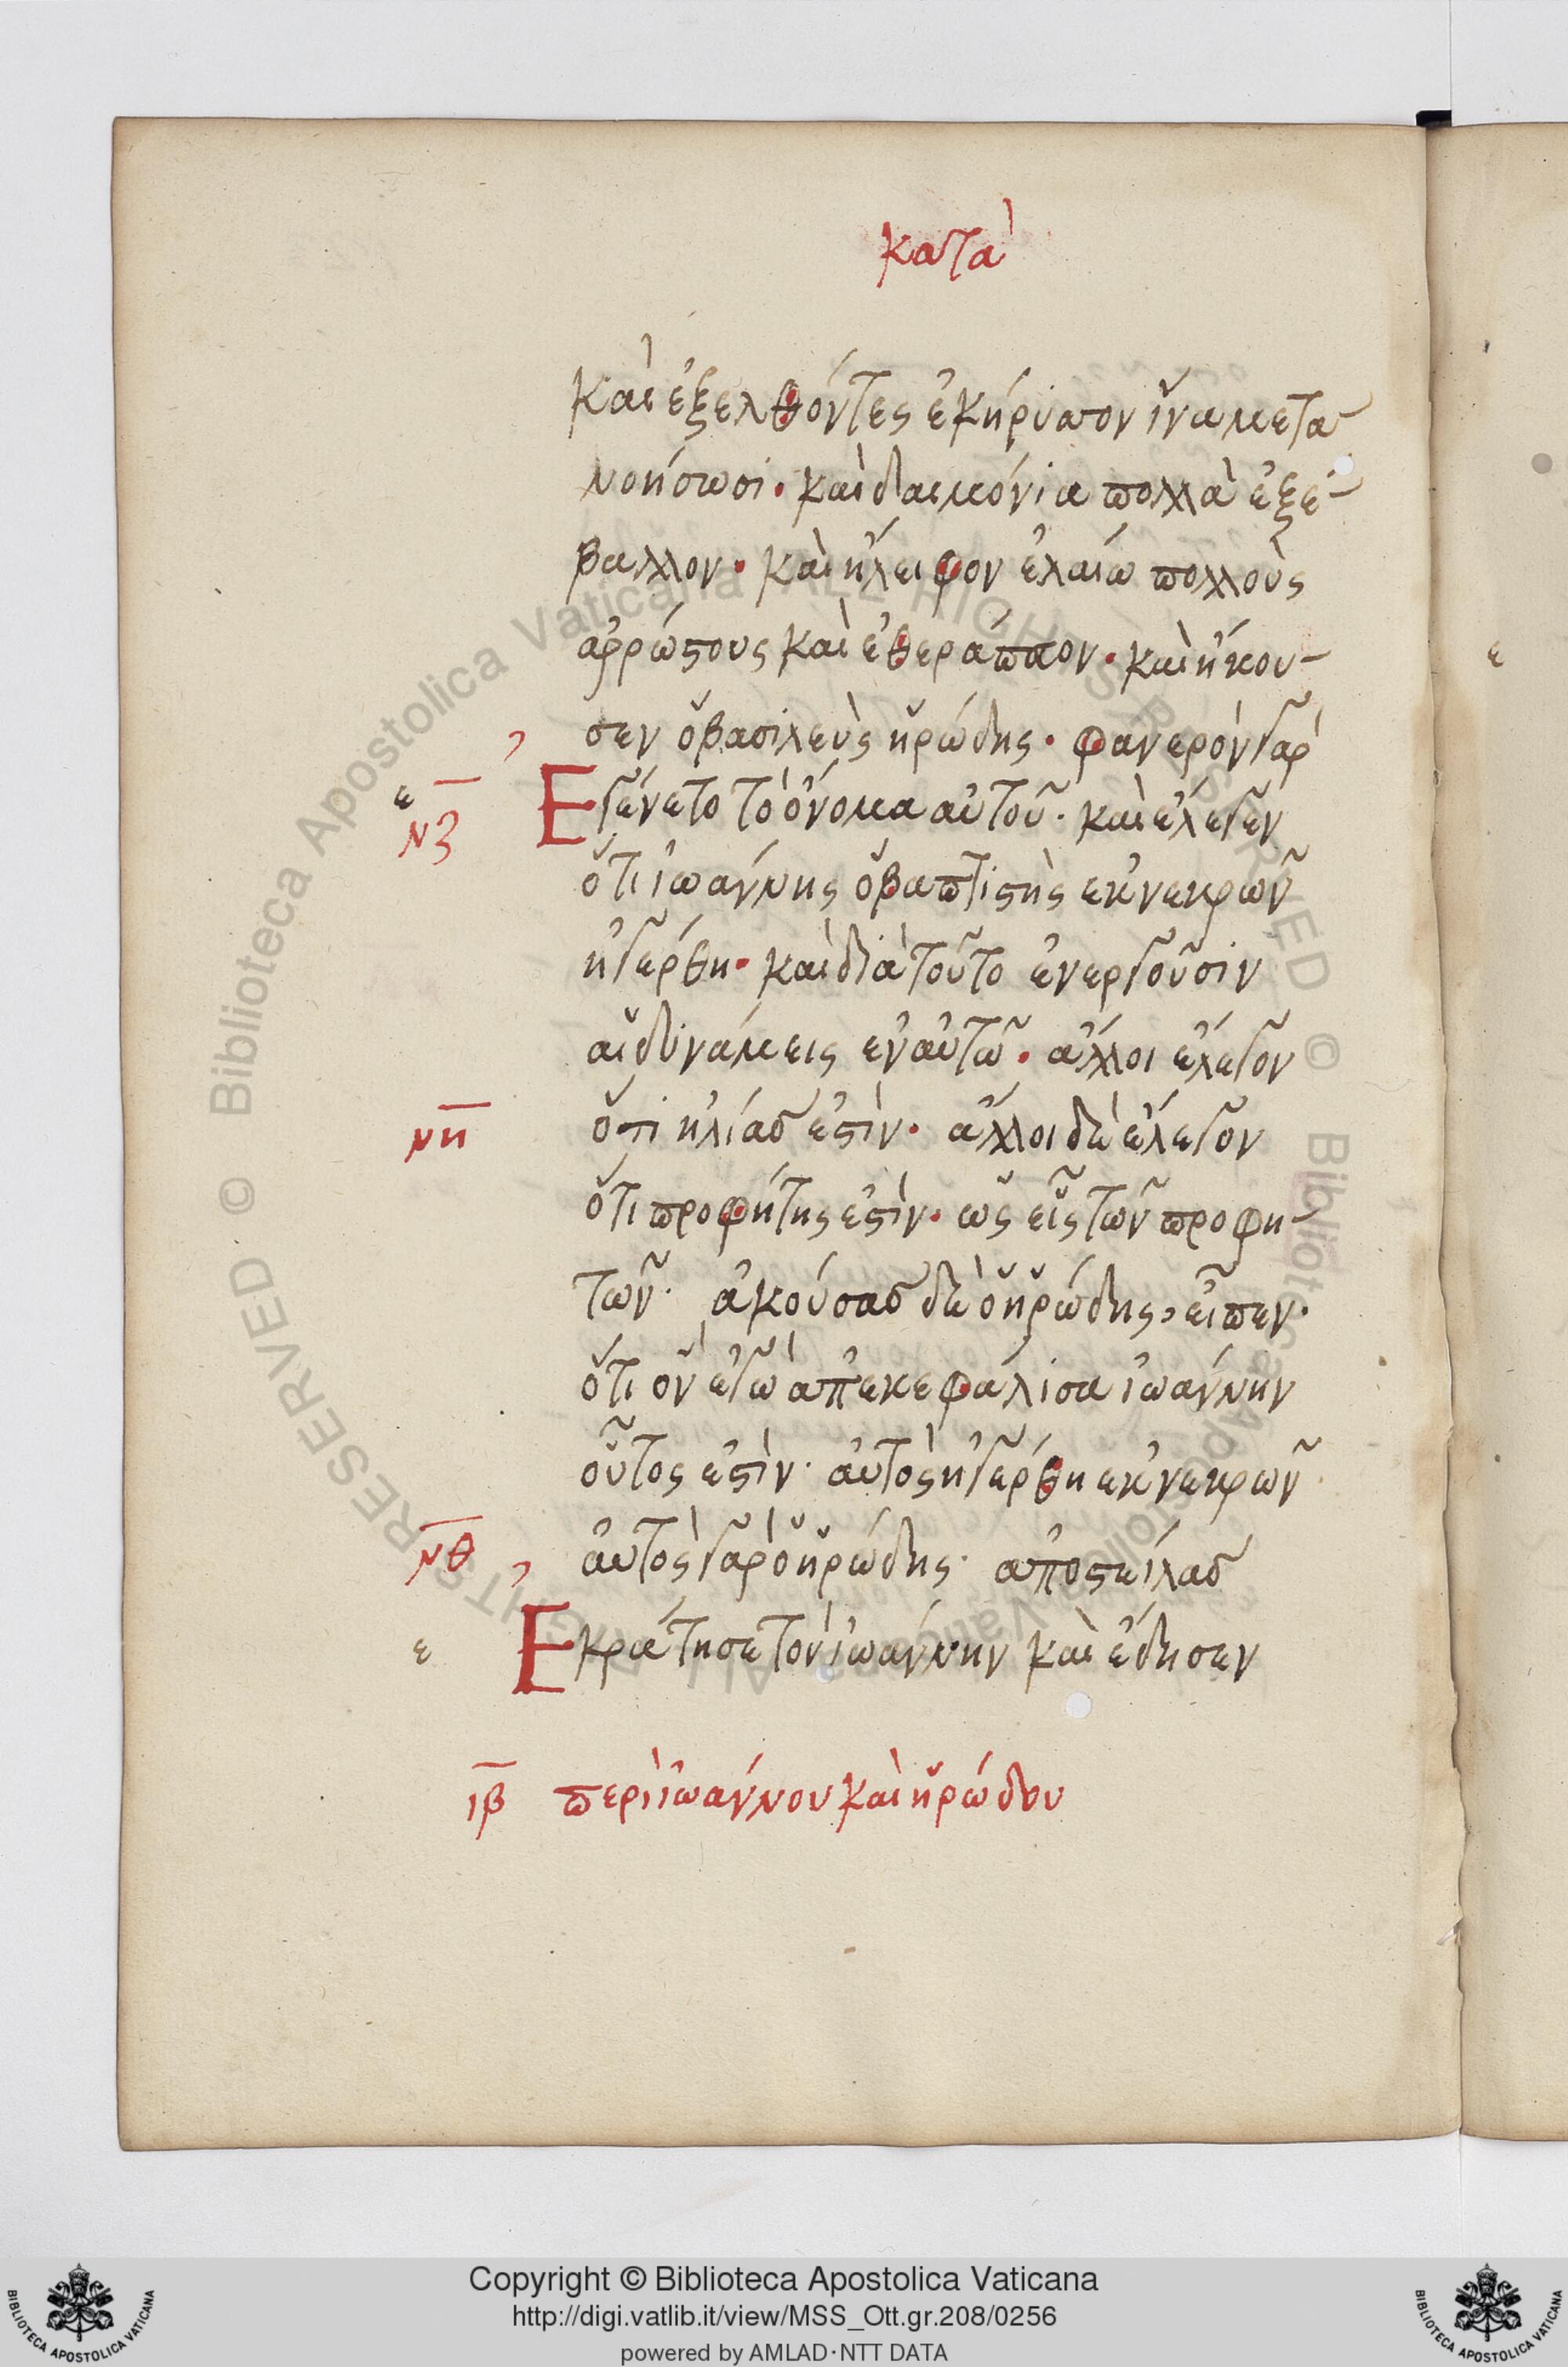 κατὰ
καὶ ἐξελθόντες ἐκήρυττον ἵνα μετα-
νοήσωσι· καὶ δαιμόνια πολλὰ ἐξέ-
βαλλον· καὶ ἤλειφον ἐλαίω πολλοὺς
ἀρρώστους καὶ ἐθεράπευον· καὶ ἤκου-
σεν ὁ βασιλεὺς ἡρώδης· φανερὸν γὰρ
ε
νζ
Ἐγένετο τὸ ὄνομα αὐτοῦ· καὶ ἔλεγεν
ὅτι ἰωάννης ὁ βαπτιστὴς ἐκ νεκρῶν
ἠγέρθη· καὶ διὰ τοῦτο ἐνεργοῦσιν
αἱ δυνάμεις ἐν αὐτῶ· ἄλλοι ἔλεγον
νη
ὅτι ἠλίας ἐστίν· ἄλλοι δὲ ἔλεγον
ὅτι προφήτης ἐστίν· ὡς εἷς τῶν προφη-
τῶν· ἀκούσας δὲ ὁ ἡρώδης, εἶπεν·
ὅτι ὃν ἐγὼ ἀπεκεφάλισα ἰωάννην
οὗτος ἐστίν· αὐτὸς ἠγέρθη ἐκ νεκρῶν
νθ
αὐτὸς γὰρ ὁ ἡρώδης· ἀποστείλας
ε
Ἐκράτησε τὸν ἰωάννην καὶ ἔδησεν
ιβ περὶ ἰωάννου καὶ ἡρώδου
ε
© Biblioteca Apostolica Vaticana ALL RIGHTS RESERVED © Biblioteca Apostolica Vaticana ALL RIGHTS RESERVED
Copyright © Biblioteca Apostolica Vaticana
http://digi.vatlib.it/view/MSS_Ott.gr.208/0256
powered by AMLAD·NTT DATA
BIBLIOTECA APOSTOLICA VATICANA
BIBLIOTECA APOSTOLICA VATICANA